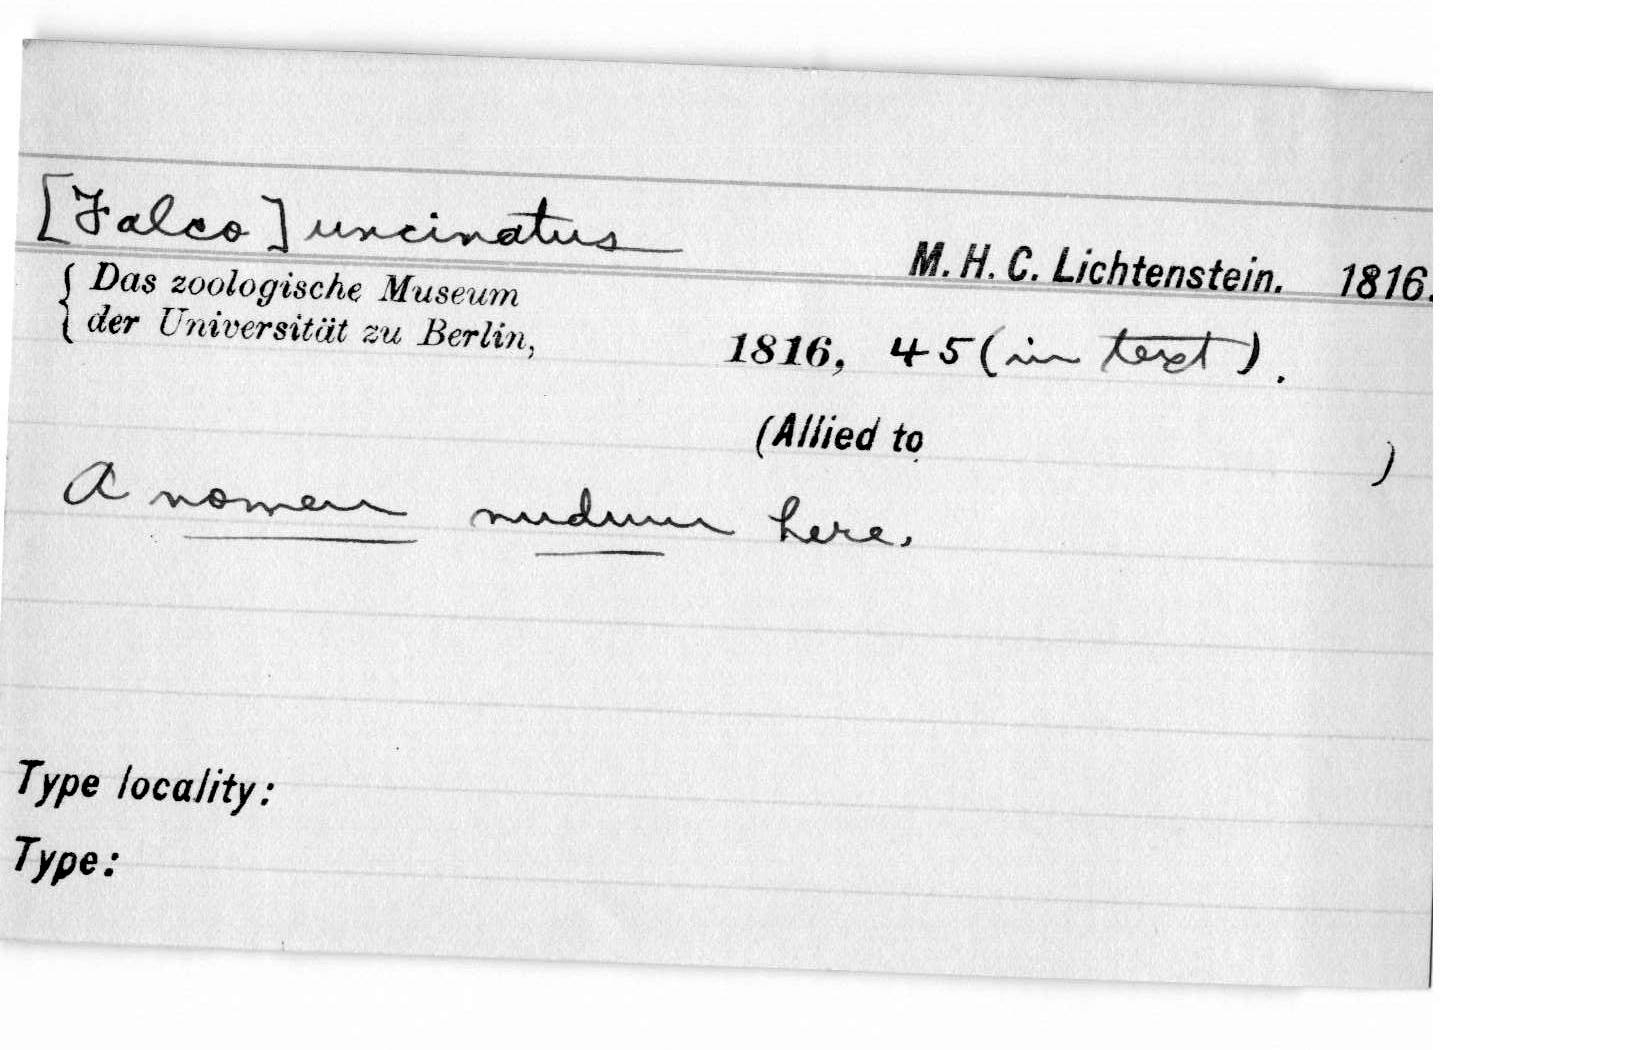 [Falco] uncinatus M. H. C. Lichtenstein. 1816.
{ Das zoologische Museum
der Universität zu Berlin, 1816, 45 (in text).
(Allied to )
A nomen nudum here.
Type locality:
Type: